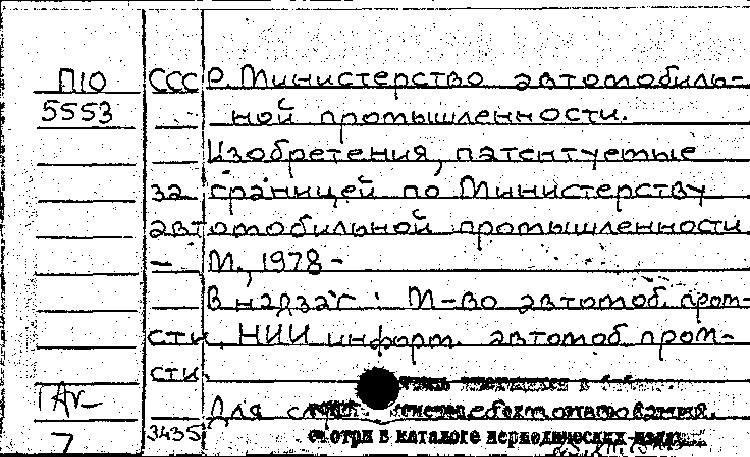 П10 СССР. Министерство автомобиль-
5553 ной промышленности.
Изобретения, патентуемые
за границей по Министерству
автомобильной промышленности
– М., 1978 –
В надзаг: М-во автомоб. пром-
сти, НИИ информ. автомоб. пром-
сти.
Для служебного пользования.
7 3435 смотри в каталоге периодических